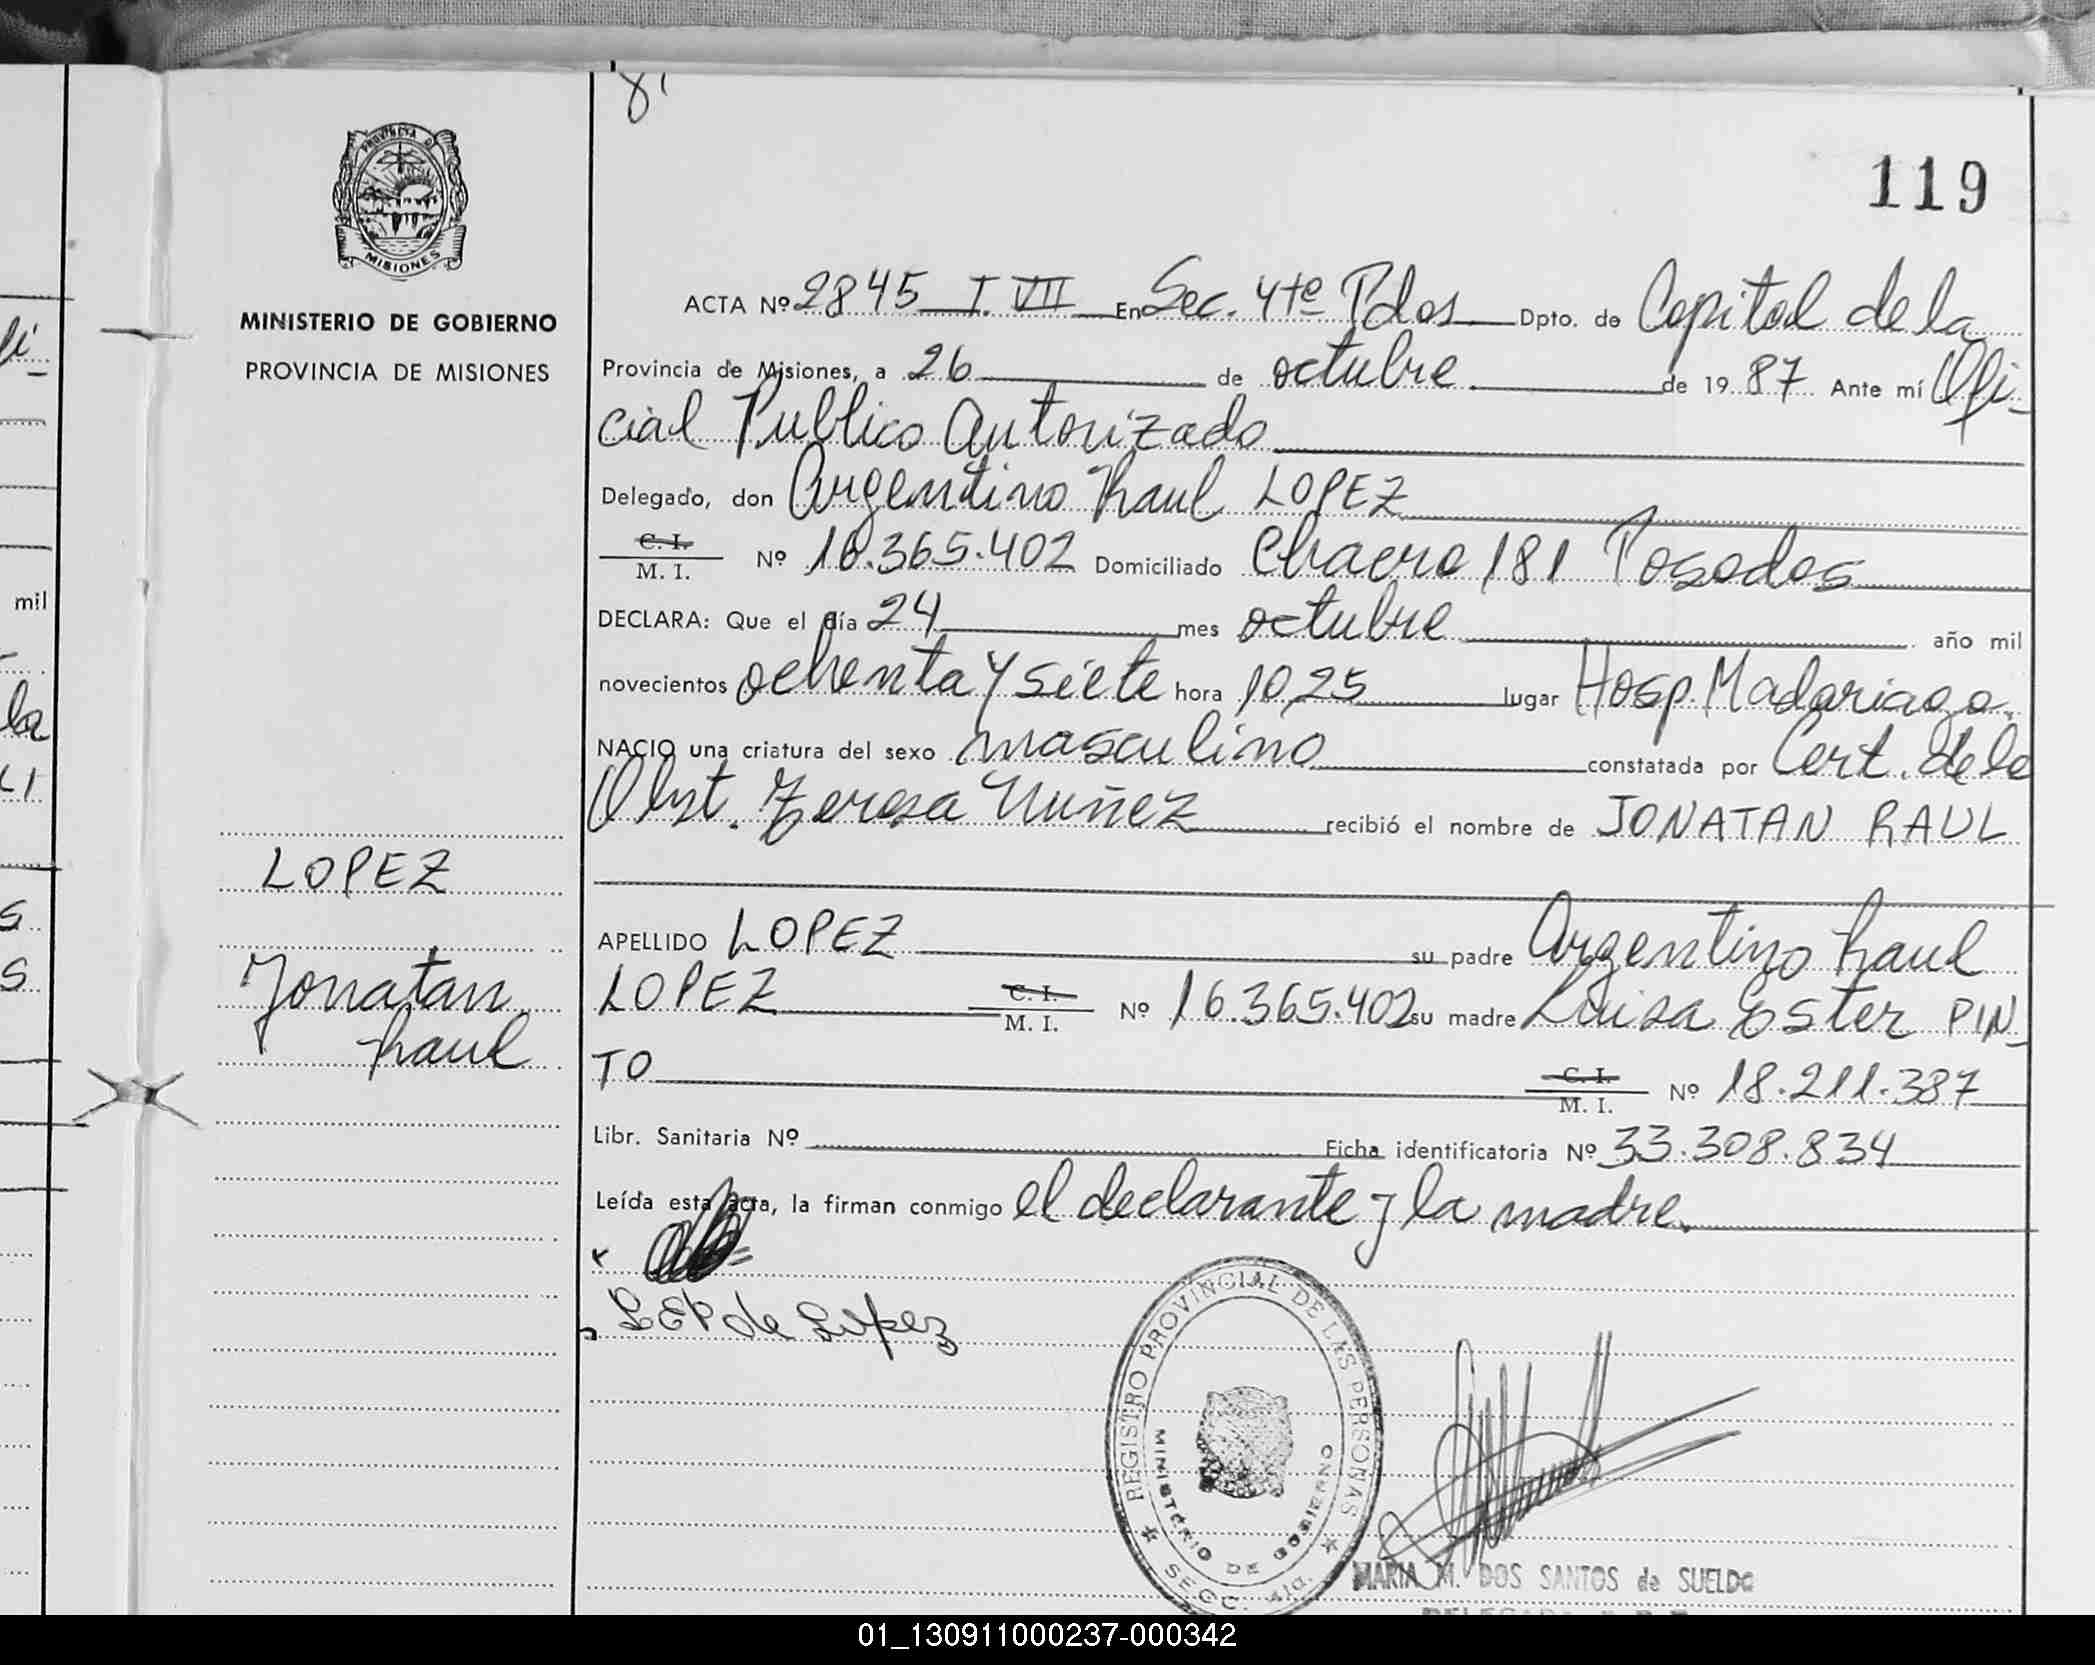 8'
119
PROVINCIA D
MISIONES
MINISTERIO DE GOBIERNO
PROVINCIA DE MISIONES
LOPEZ
Jonatan
Raul
ACTA Nº 2845 T. VII En Sec. 4te Pdas Dpto. de Capital de la
Provincia de Misiones, a 26 de octubre de 1987 Ante mí Ofi-
cial Publico Autorizado
Delegado, don Argentino Raul LOPEZ
C. I. / M. I. Nº 16.365.402 Domiciliado Chacra 181 Posadas
DECLARA: Que el día 24 mes octubre año mil
novecientos ochenta y siete hora 10,25 lugar Hosp. Madariaga.
NACIO una criatura del sexo masculino constatada por Cert. de la
Obst. Teresa Nuñez recibió el nombre de JONATAN RAUL
APELLIDO LOPEZ su padre Argentino Raul
LOPEZ C. I. / M. I. Nº 16.365.402 su madre Luisa Ester PIN-
TO C. I. / M. I. Nº 18.211.387
Libr. Sanitaria Nº Ficha identificatoria Nº 33.308.834
Leída esta acta, la firman conmigo el declarante y la madre.
L E P de López
REGISTRO PROVINCIAL DE LAS PERSONAS
MINISTERIO DE GOBIERNO
SECC. 4ta.
MARIA M. DOS SANTOS de SUELDO
mil
la
01_130911000237-000342